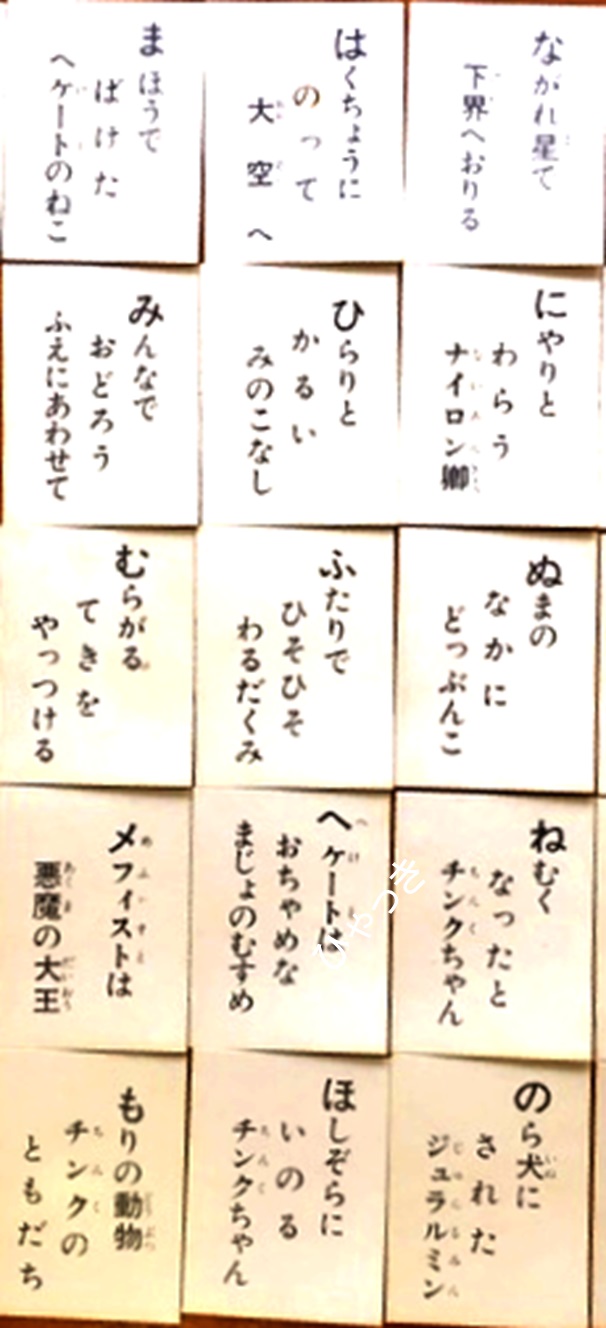 ながれ星で
下界へおりる
にやりと
わらう
ナイロン卿
ぬまの
なかに
どっぷんこ
ねむく
なったと
チンクちゃん
のら犬に
された
ジュラルミン
はくちょうに
のって
大空へ
ひらりと
かるい
みのこなし
ふたりで
ひそひそ
わるだくみ
ヘケートは
おちゃめな
まじょのむすめ
ほしぞらに
いのる
チンクちゃん
まほうで
ばけた
ヘケートのねこ
みんなで
おどろう
ふえにあわせて
むらがる
てきを
やっつける
メフィストは
悪魔の大王
もりの動物
チンクの
ともだち
ひやつき